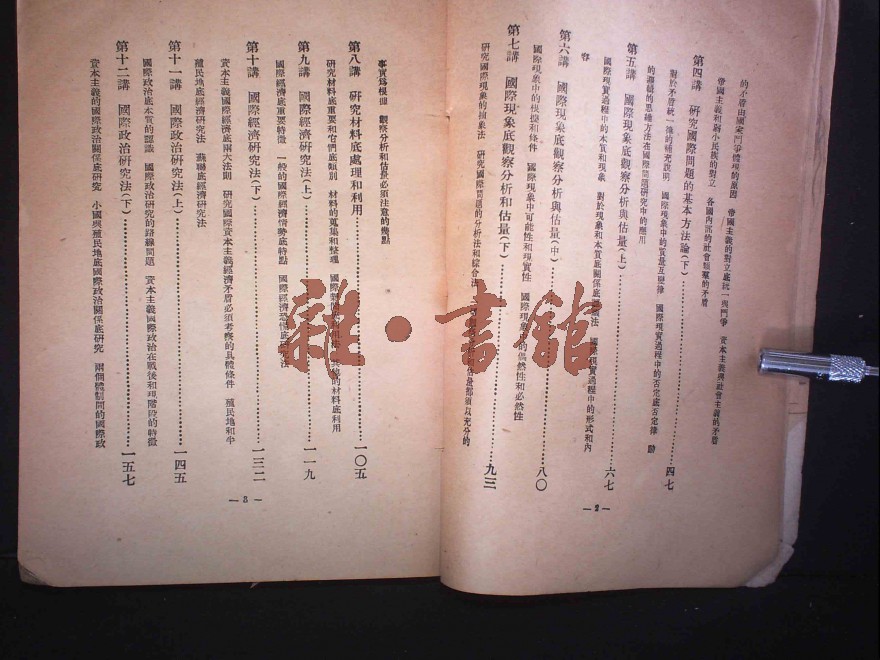 的矛盾由國家鬥爭體現的原因　帝國主義的對立底統一與鬥爭　資本主義與社會主義的矛盾
帝國主義和弱小民族的對立　各國內部的社會
第四講　研究國際問題的基本方法論(下)…………四七
對於矛盾統一律的補充說明　國際現象中的質量互變律　國際現實過程中的否定底否定律
的邏輯的思維方法在國際問題研究中的應用
第五講　國際現象底觀察分析與估量(上)…………六七
國際現實過程中的本質和現象　對於現象和本質底關係底　國際現實過程中的形式和內
容
第六講　國際現象底觀察分析與估量(中)…………八〇
國際現象中的根據和條件　國際現象中可能性和現實性　國際現象中的偶然性和必然性
第七講　國際現象底觀察分析和估量(下)…………九三
研究國際現象的抽象法　研究國際問題的分析法和綜合法　分析和估量都須以充分的
—2—
事實爲根據　觀察分析和估量必須注意的幾點
第八講　研究材料底處理和利用…………一〇五
研究材料底重要和它們底類別　材料的蒐集和整理　國際　的材料底利用
第九講　國際經濟研究法(上)…………一一九
國際經濟底重要特徵　一般的國際經濟情勢底特點　國際經濟恐慌底研究法
第十講　國際經濟研究法(下)…………一三二
資本主義國際經濟底兩大法則　研究國際資本主義經濟矛盾必須考察的具體條件　殖民地和半
殖民地底經濟研究法　蘇聯底經濟研究法
第十一講　國際政治研究法(上)…………一四五
國際政治底本質的認識　國際政治研究的路線問題　資本主義國際政治在戰後和現階段的特徵
第十二講　國際政治研究法(下)…………一五七
資本主義的國際政治關係底研究　小國與殖民地底國際政治關係底研究　兩個體制間的國際政
—3—
雜·書館